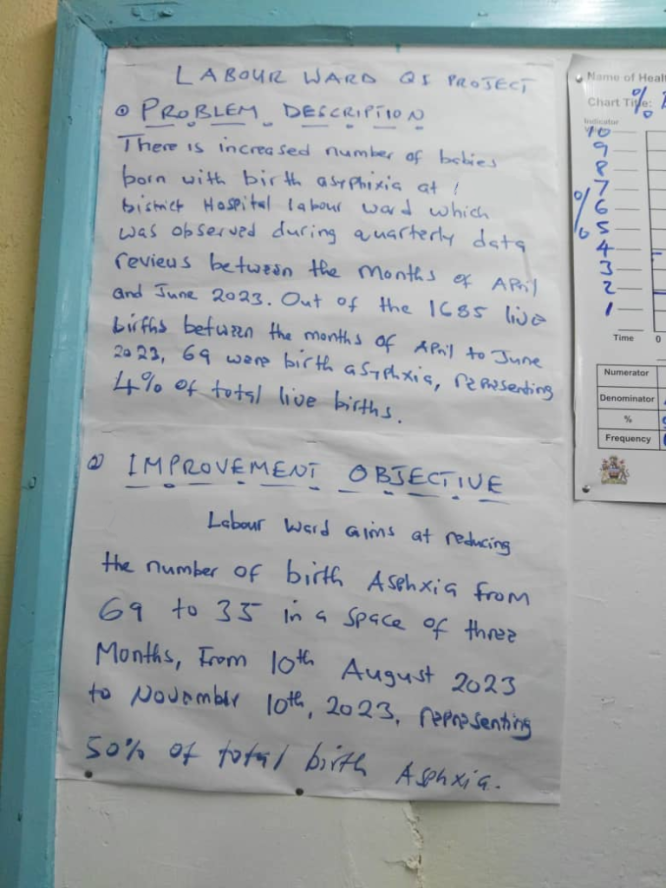 LABOUR WARD QI PROJECT
① PROBLEM DESCRIPTION
There is increased number of babies
born with birth asyphixia at
District Hospital labour ward which
was observed during quarterly data
reviews between the months of April
and June 2023. Out of the 1685 live
births between the months of April to June
2023, 69 were birth asyphxia, representing
4% of total live births.
② IMPROVEMENT OBJECTIVE
Labour Ward aims at reducing
the number of birth Asphxia from
69 to 35 in a space of three
Months, From 10th August 2023
to November 10th, 2023, representing
50% of total birth Asphxia.
Name of Heal
Chart Title: %
Indicator
10
9
8
7
%
6
5
4
3
2
1
Time 0
Numerator
Denominator
%
Frequency